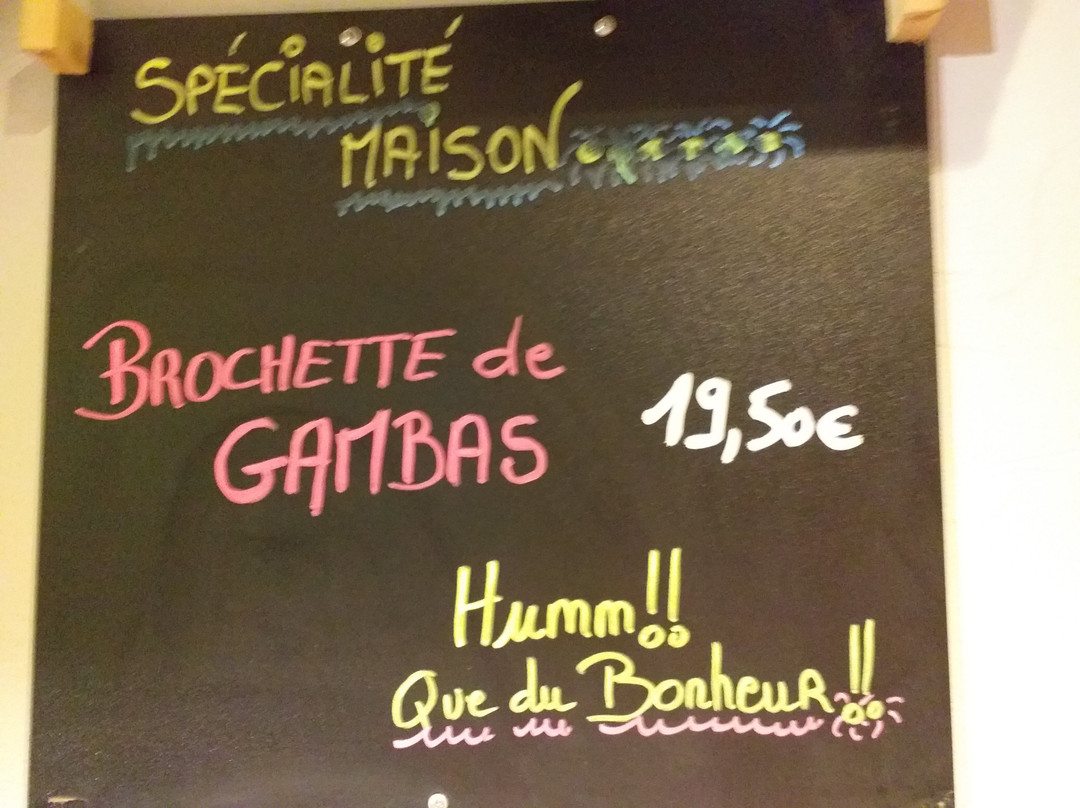 SPÉCIALITÉ
MAISON.....
BROCHETTE de
GAMBAS 19,50€
Humm!!
Que du BonheuR!!